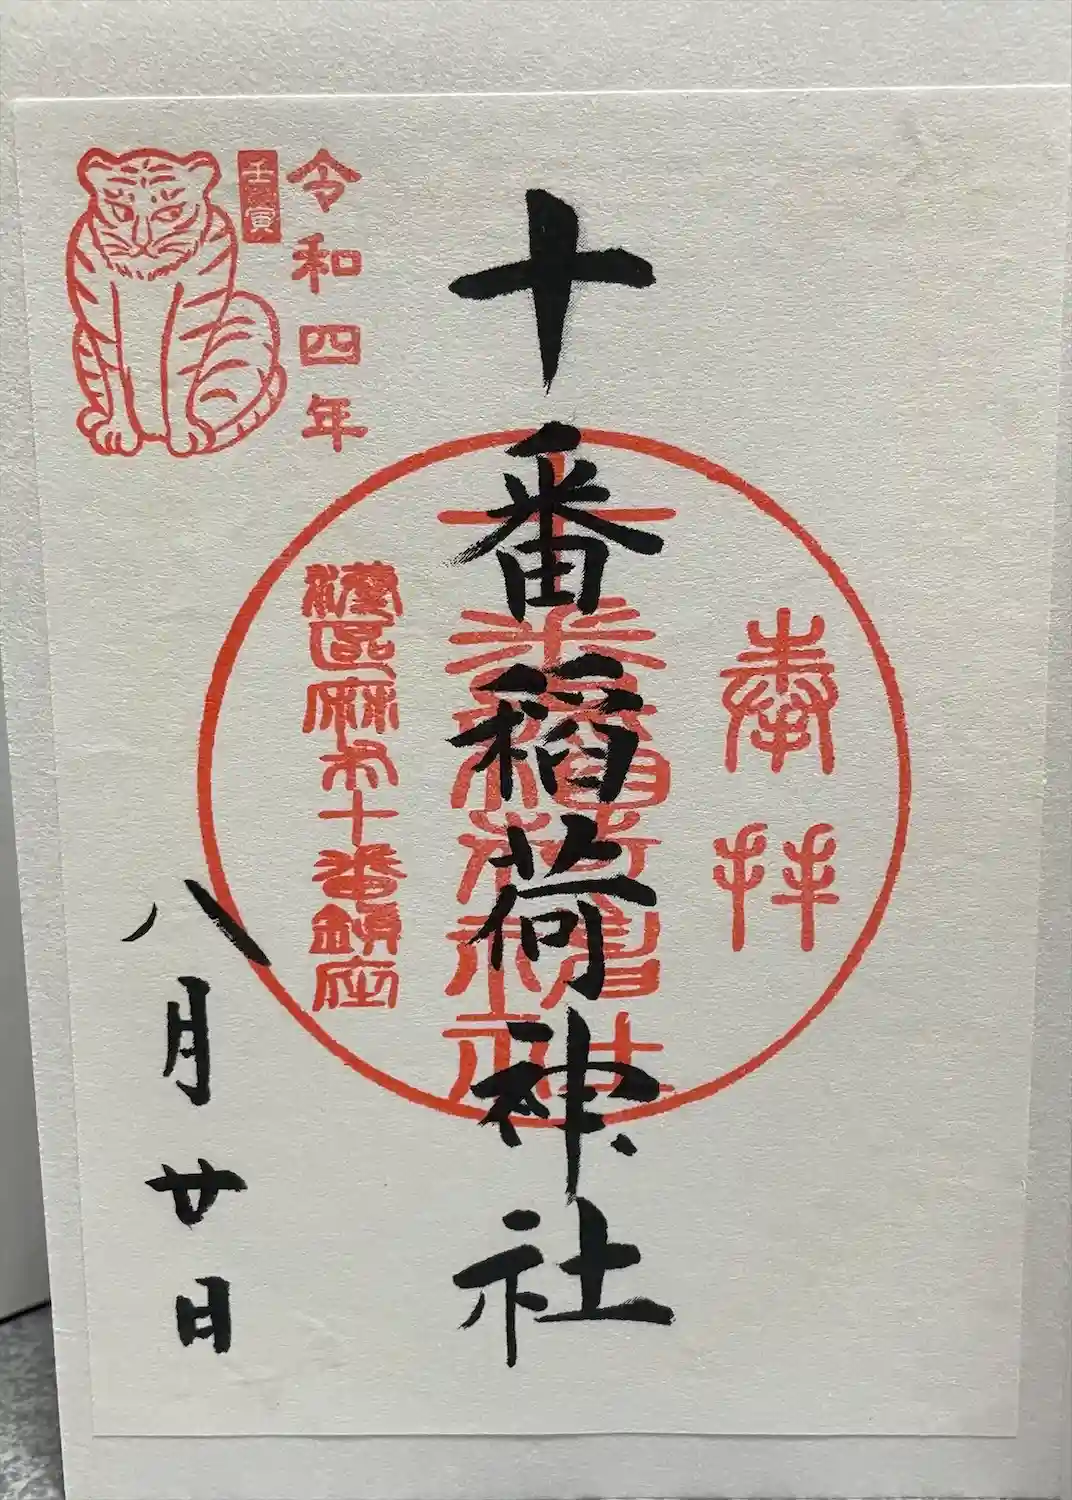 奉拝
十番稲荷神社
十番稲荷神社
港区麻布十番鎮座
令和四年
壬寅
八月廿日